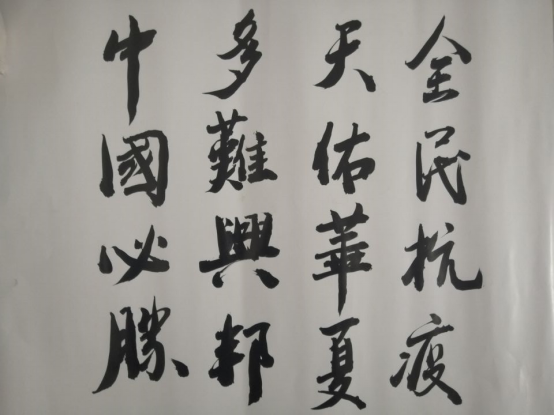 全民抗疫
天佑華夏
多難興邦
中國必勝